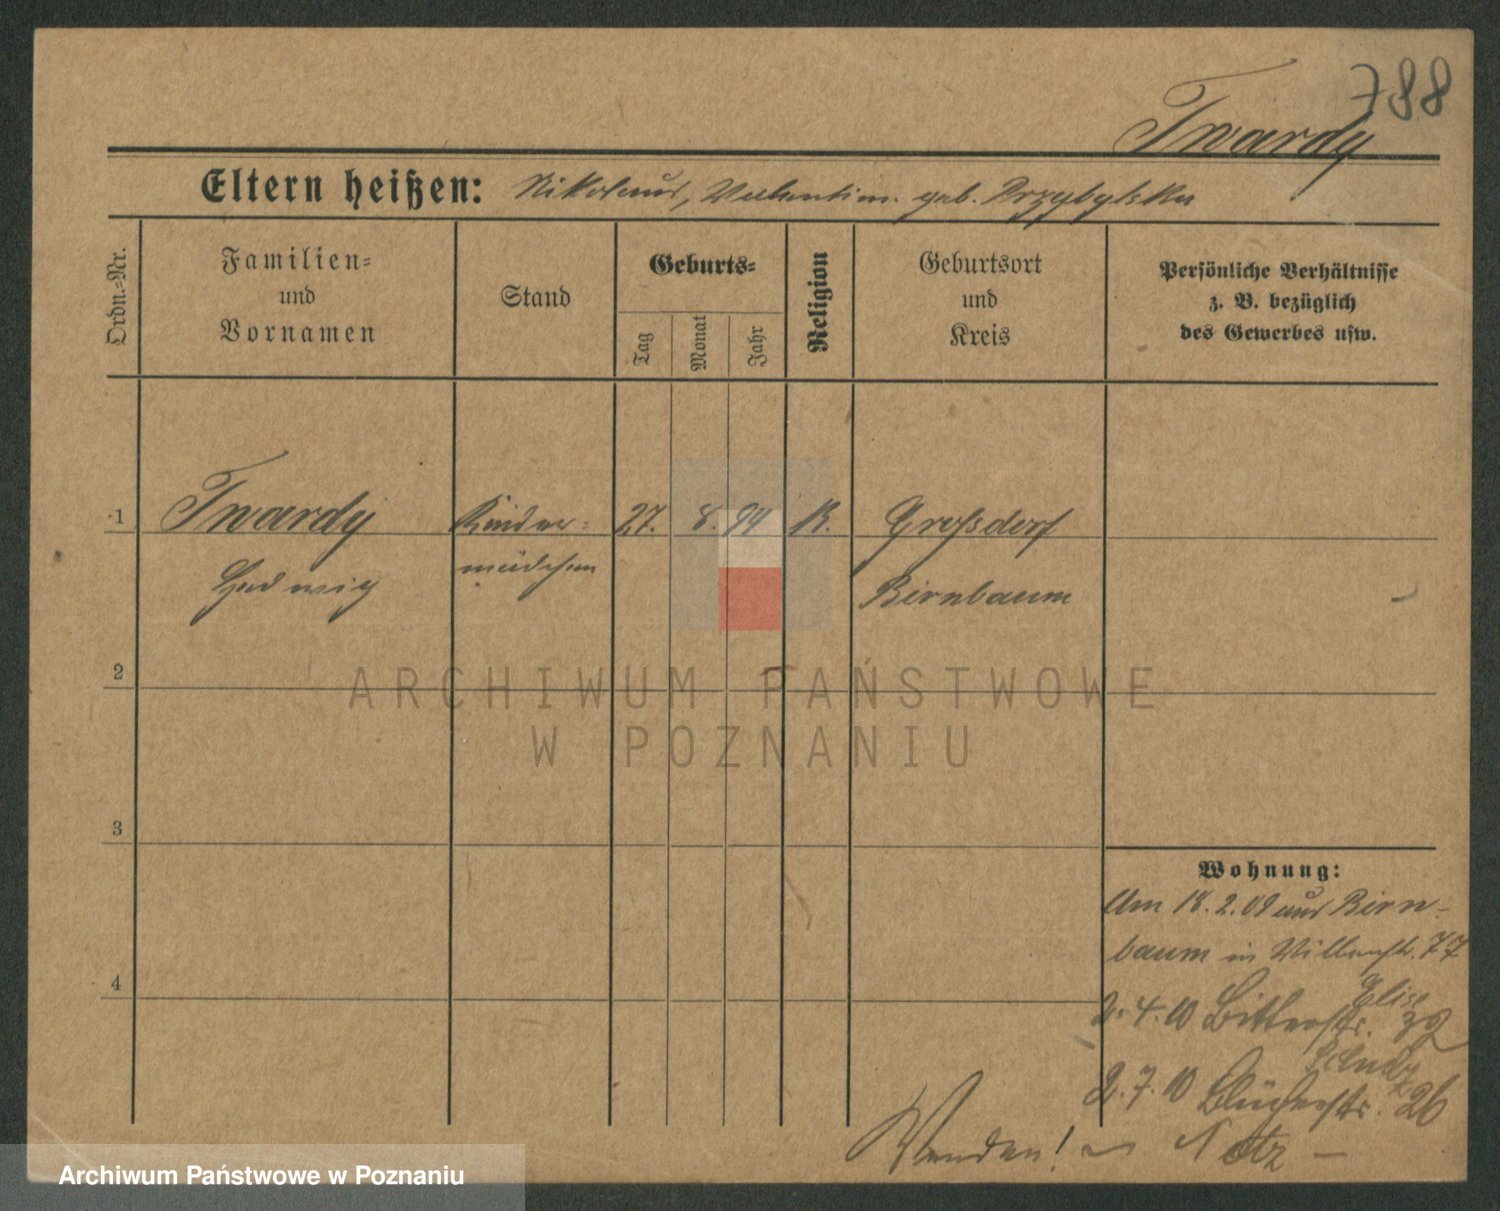 788
Twardy
Eltern heißen: Nikolaus, Valentin. geb. Przybylska
Ordn.-Nr.
Familien-
und
Vornamen
Stand
Geburts-
Tag
Monat
Jahr
Religion
Geburtsort
und
Kreis
Persönliche Verhältnisse
z. B. bezüglich
des Gewerbes usw.
1 Twardy Kinder- 27. 8. 94 K. Großdorf
Hedwig mädchen Birnbaum
2
ARCHIWUM PAŃSTWOWE
W POZNANIU
3
Wohnung:
Am 18.2.09 aus Birn-
baum in 77
4
Elise
2.4.10 Bitterstr. 32
2.7.10 Blücherstr. 26
Wenden! Notz
Archiwum Państwowe w Poznaniu